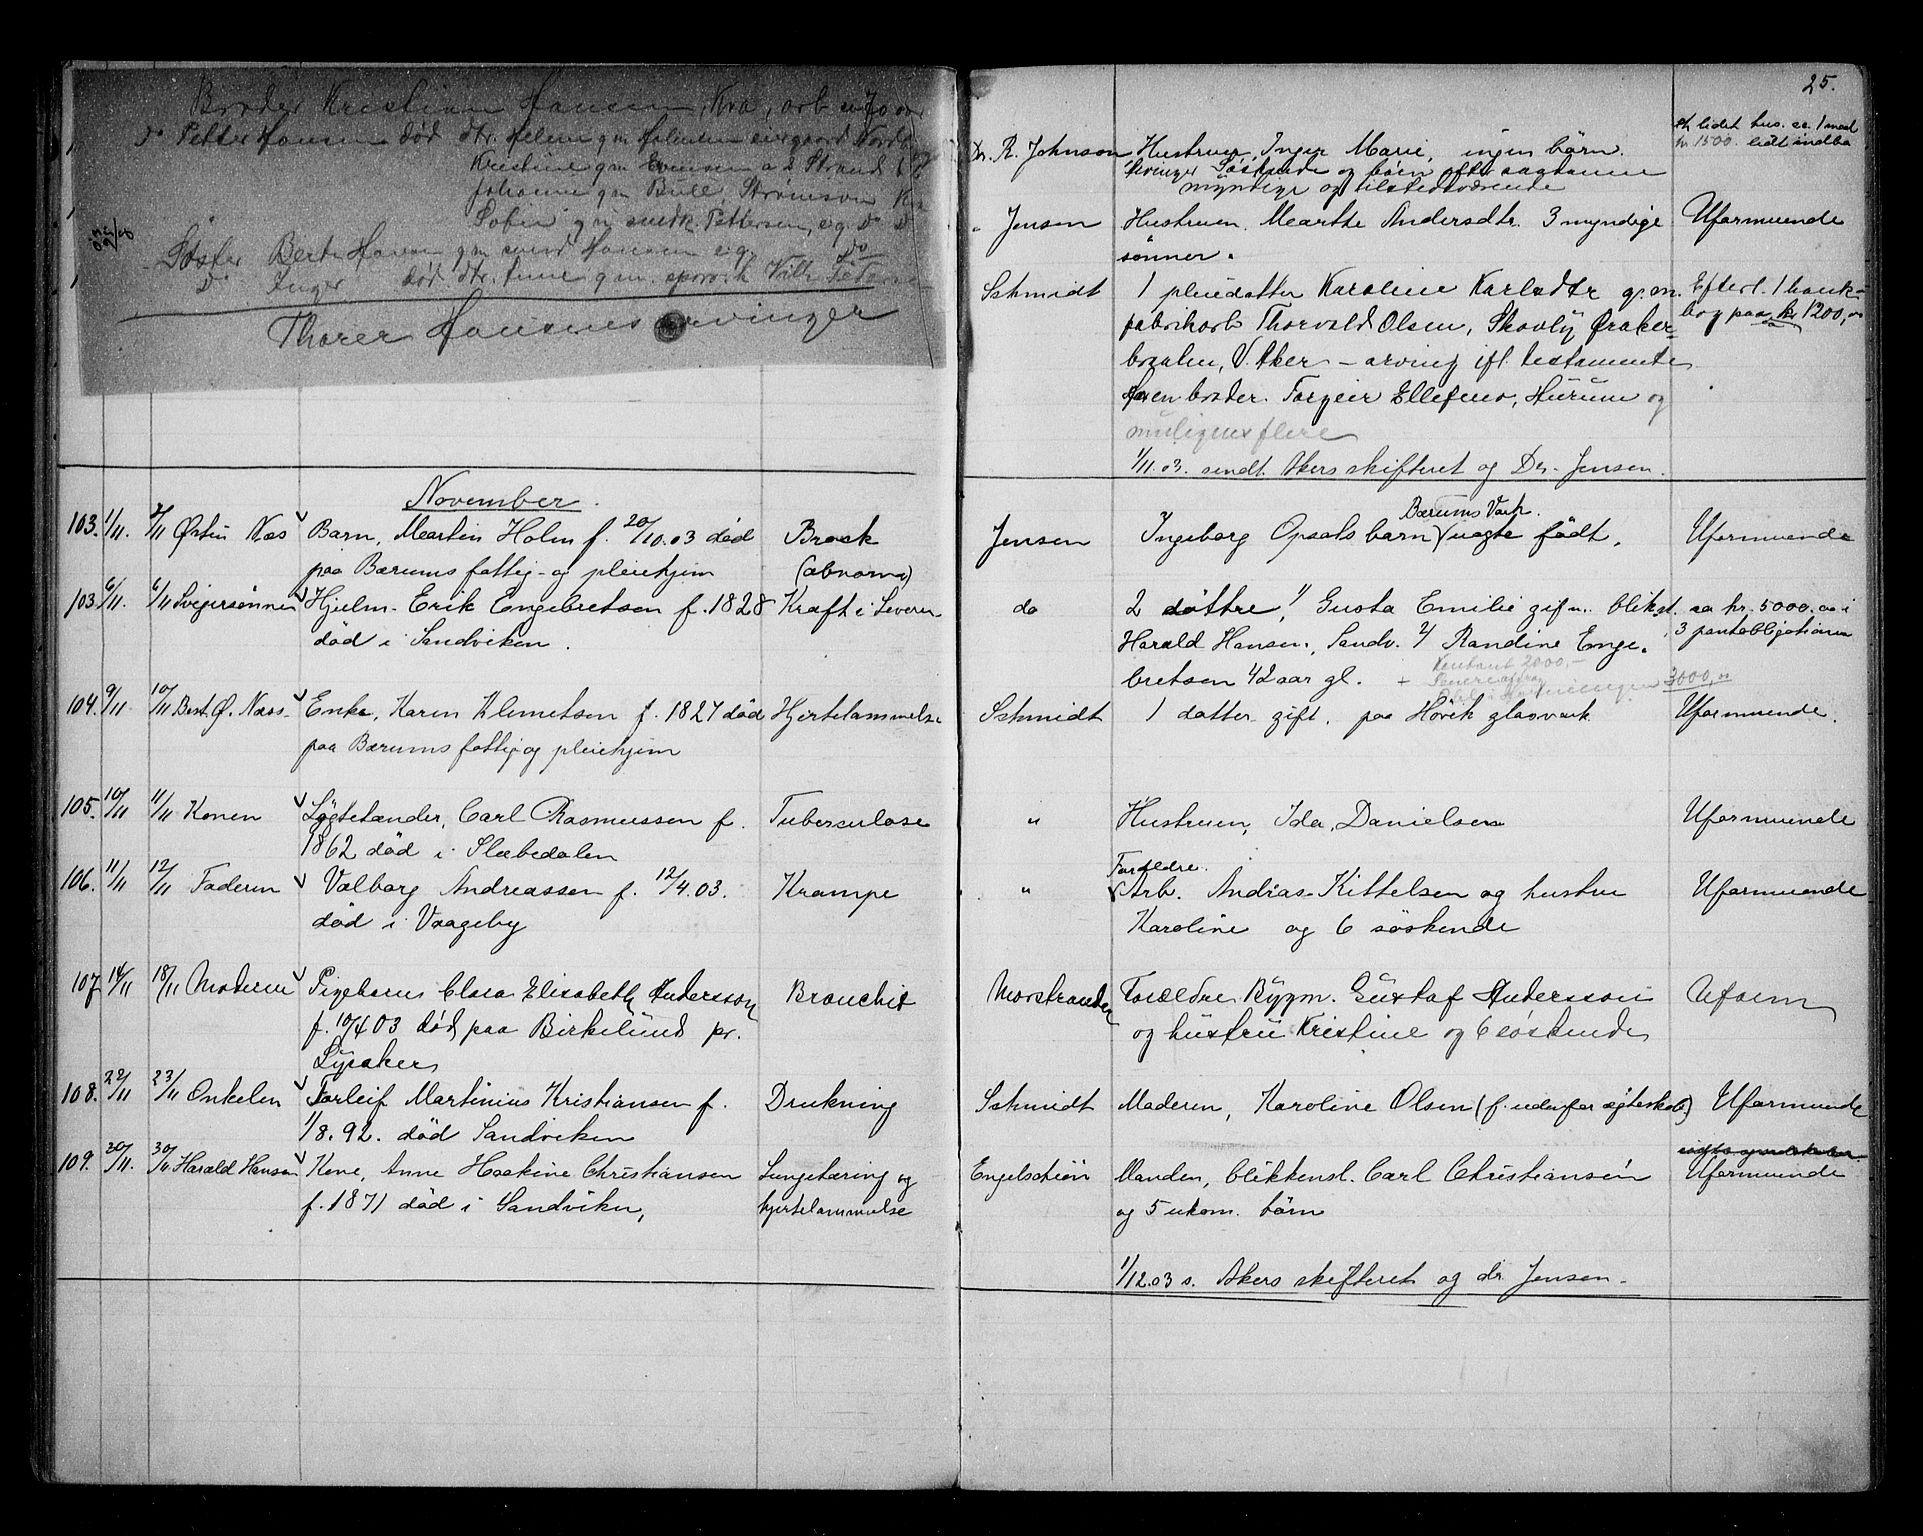 Broder Kristian Hansen, Kra, arb
Do Petter Hansen død dtr. Helene gm Halvorsen
Kristine gm Evensen a 2 Strand
Johanne gm Bull Strømsøen
gm snedk. Pettersen, eg. Do Do
Søster Berte Hansen gm Hansen eg. Do
Do Inger død dtr. gm.
Thorer Hansens arvinger
25.
lidet hus. ca. 1 maal
kr. 1500. lidt indbo
Dr. R. Johnson Hustruen, Inger Marie, ingen børn.
Arvinger Søskende og børn efter saadanne
myndige og tilstedeværende
" Jensen Hustruen. Marthe Andersdtr. 3 myndige Uformuende
sønner.
Schmidt 1 pleiedatter Karoline Karlsdtr g. m. Efterl. 1 bank-
fabrikarb Thorvald Olsen, Skovly Øraker- bog paa kr 1200,00
braaten, V. Aker – arving ifl. testamente
Har en broder. Torgeir Ellefsen, Hurum og
muligens flere
1/11.03. sendt Akers skifteret og Dr. Jensen.
November.
103. 1/11. 2/11 Østen Næs Barn, Martin Holm f. 20/10.03 død Brock Jensen Ingeborg Opsals barn uægte født. Bærums Værk. Uformuende
paa Bærums fattig- og pleiehjem (abnorm)
103. 6/11. 6/11 Svigersønnen Hjulm. Erik Engebretsen f. 1828 Kræft i Leveren do 2 døttre, 1/ Gusta Emilie gif m. blikst. ca kr. 5000.00 i
død i Sandviken. Harald Hansen, Sandv. 2/ Randine Enge- 3 pantobligationer
bretsen 42 aar gl. + Kontant 2000,- 3000,00
104. 9/11 10/11 Best. Ø. Næss Enke, Karen Klemetsen f. 1827 død Hjertelammelse Schmidt 1 datter gift. paa Høvik glasværk Uformuende.
paa Bærums fattig og pleiehjem
105. 10/11 11/11 Konen Løgtetænder, Carl Rasmussen f. Tuberculose " Hustruen, Ida Danielsen Uformuende
1862 død i Slæbedalen
106. 11/11 12/11 Faderen Valborg Andreassen f. 12/4.03. Krampe " Forældre. Arb. Andras Kittelsen og hustru Uformuende
død i Vaageby Karoline og 6 søskende
107 14/11 18/11 Moderen Pigebarnet Clara Elisabeth Andersson Bronchit Morstranden Forældre Bygm. Gustaf Andersson Uform
f. 10/4 03 død paa Birkelund pr. og hustru Kristine og 6 søskende
Lysaker
108. 22/11 23/11 Onkelen Torleif Martinius Kristiansen f. Drukning Schmidt Moderen, Karoline Olsen (f. udenfor ægteskab) Uformuende
1/8.92. død Sandviken
109. 30/11. 30/11 Harald Hansen Kone, Anne Haakine Christiansen Lungetæring og Engelschiøn Manden, blikkensl. Carl Christiansen Uformuende
f. 1871 død i Sandviken, hjertelammelse og 5 ukom. børn
1/12.03 s. Akers skifteret og dr. Jensen.